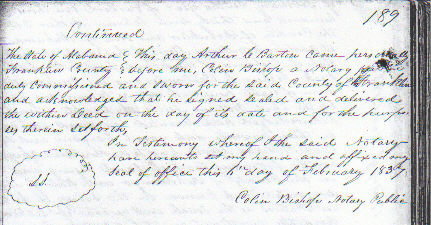 189
Continued
The State of Alabama } This day Arthur C Barton came personally
Franklin County } before me, Colin Bishop a Notary
duly Commissioned and Sworn for the Said County of Franklin
and acknowledged that he signed Sealed and delivered
the within Deed on the day of its date and for the purpo
ses therein Set forth,
In Testimony whereof I the said Notary
have hereunto set my hand and affixed my
Seal of office this day of February
L.S.
Colin Bishop Notary Public